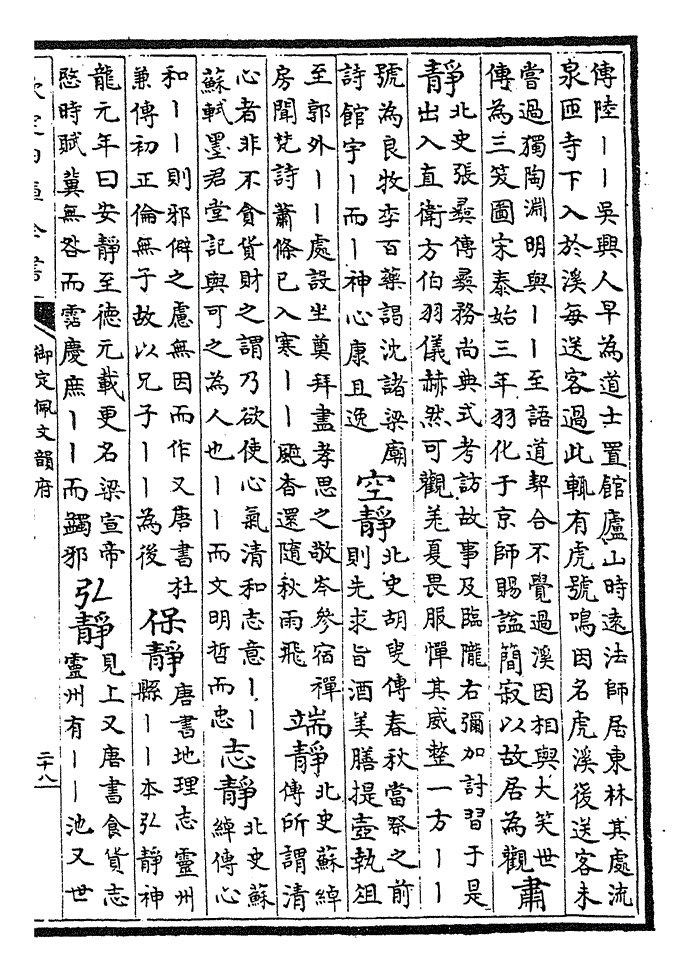 傳陸丨丨吳興人早為道士置館廬山時遠法師居東林其處流
泉匝寺下入於溪每送客過此輒有虎號鳴因名虎溪後送客未
嘗過獨陶淵明與丨丨至語道契合不覺過溪因相與大笑世
傳為三笑圖宋泰始三年羽化于京師賜謚簡寂以故居為觀
肅
靜
北史張彞傳彞務尚典式考訪故事及臨隴右彌加討習于是
出入直衛方伯羽儀赫然可觀羌夏畏服憚其威整一方丨丨
號為良牧李百藥謁沈諸梁廟
詩館宇丨而丨神心康且逸
空靜
北史胡叟傳春秋當祭之前
則先求旨酒美膳提壺執俎
至郭外丨丨處設坐奠拜盡孝思之敬岑參宿禪
房聞梵詩蕭條已入寒丨丨颯杳還隨秋雨飛
端靜
北史蘇綽
傳所謂清
心者非不貪貨財之謂乃欲使心氣清和志意丨丨
蘇軾墨君堂記與可之為人也丨丨而文明哲而忠
志靜
北史蘇
綽傳心
和丨丨則邪僻之慮無因而作又唐書杜
兼傳初正倫無子故以兄子丨丨為後
保靜
唐書地理志靈州
縣丨丨本弘靜神
龍元年曰安靜至德元載更名梁宣帝
愍時賦冀無咎而霑慶庶丨丨而蠲邪
弘靜
見上又唐書食貨志
靈州有丨丨池又世
御定佩文韻府
二十八